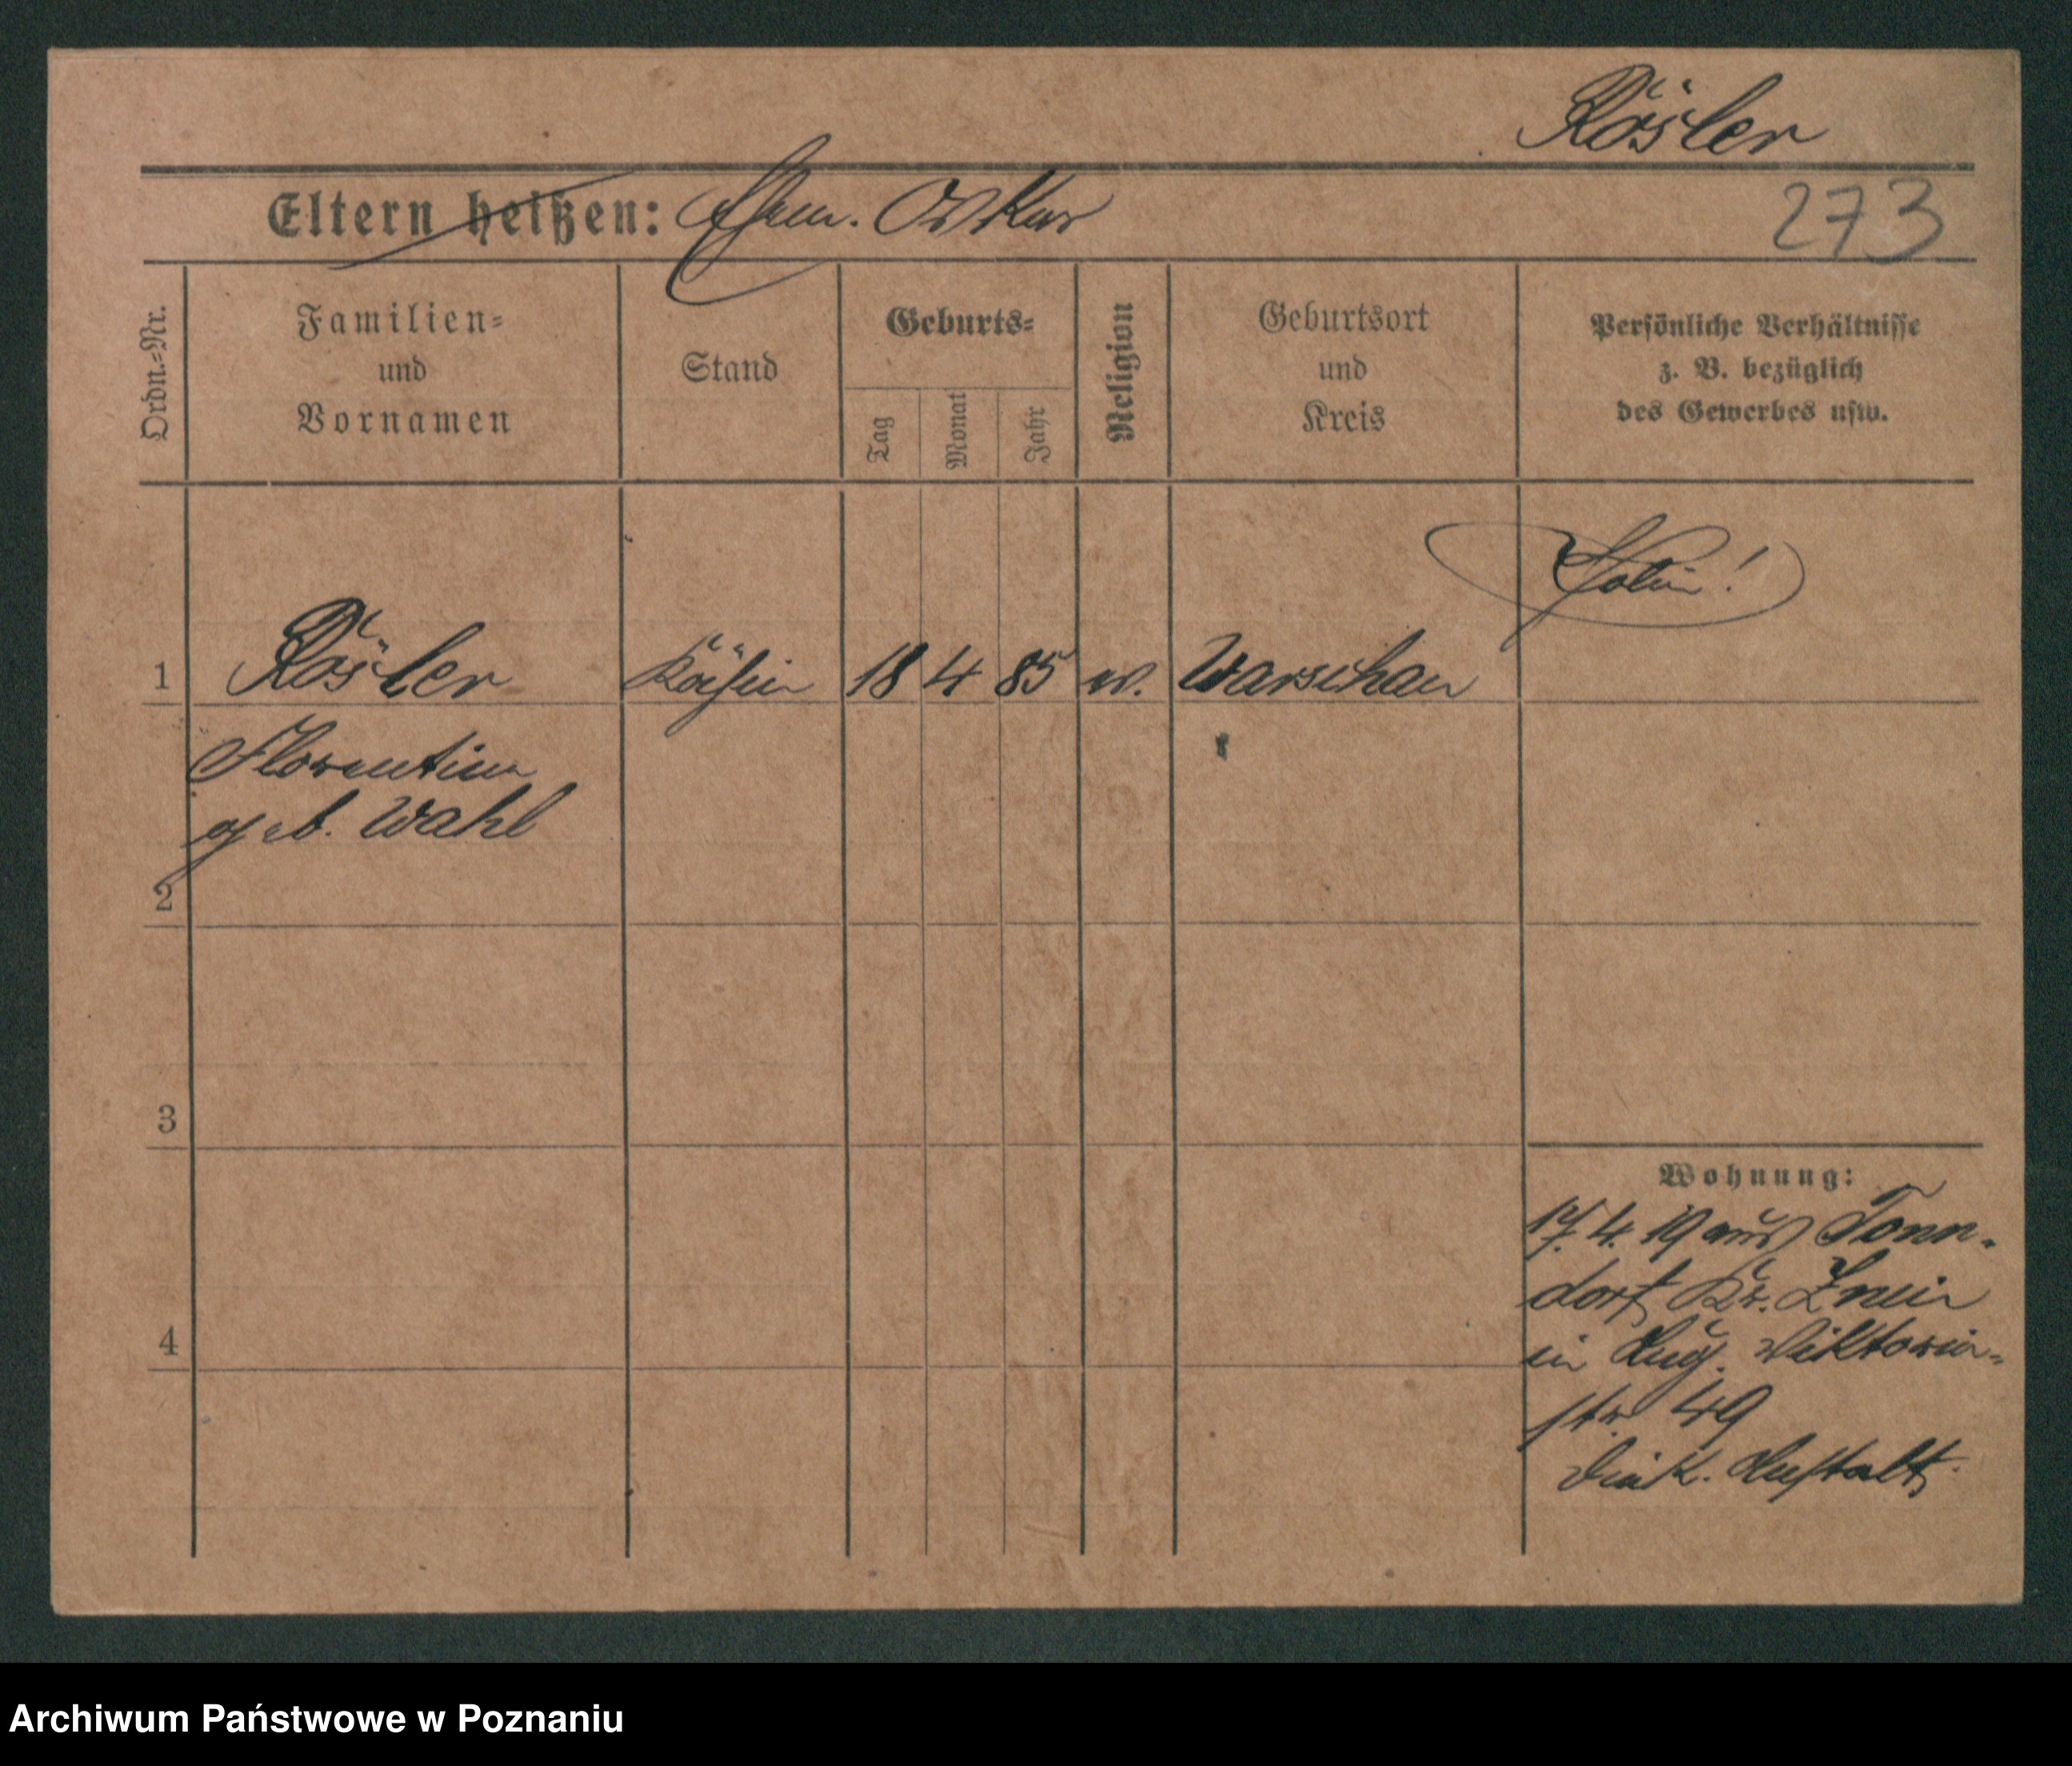 Rösler
Eltern heißen: Ehem. Oskar
273
Ordn.-Nr.
Familien-
und
Vornamen
Stand
Geburts-
Tag
Monat
Jahr
Religion
Geburtsort
und
Kreis
Persönliche Verhältnisse
z. B. bezüglich
des Gewerbes usw.
Polin!
1 Rösler Köchin 18 4 85 ev. Warschau
Florentine
geb. Wahl
2
3
Wohnung:
17. 4. 19 aus Tonn-
dorf Kr. Znin
in Aug. Viktoria-
4
str 49
Diak. Anstalt
Archiwum Państwowe w Poznaniu